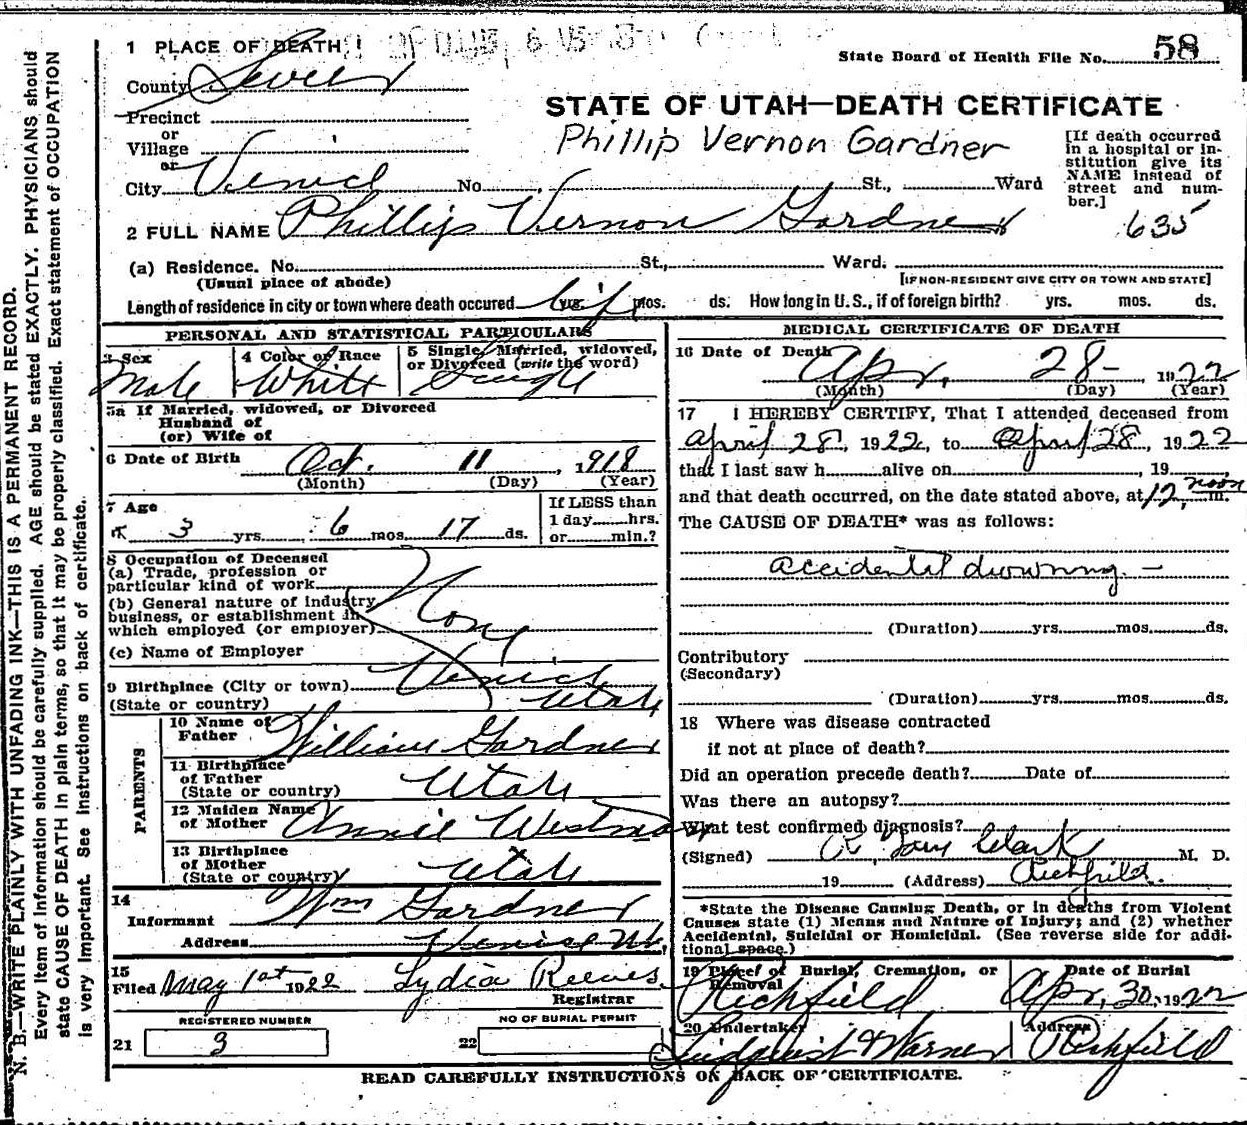 1 PLACE OF DEATH
State Board of Health File No. 58
County Sevier
STATE OF UTAH—DEATH CERTIFICATE
Precinct
or
Village
or
City Venice No. St., Ward
Phillip Vernon Gardner
[If death occurred
in a hospital or in-
stitution give its
NAME instead of
street and num-
ber.]
635
2 FULL NAME Phillip Vernon Gardner
(a) Residence. No. St., Ward.
(Usual place of abode)
[IF NON-RESIDENT GIVE CITY OR TOWN AND STATE]
Length of residence in city or town where death occured life yrs. mos. ds. How long in U. S., if of foreign birth? yrs. mos. ds.
PERSONAL AND STATISTICAL PARTICULARS
3 Sex
Male
4 Color or Race
White
5 Single, Married, widowed,
or Divorced (write the word)
Single
5a If Married, widowed, or Divorced
Husband of
(or) Wife of
6 Date of Birth Oct. 11, 1918
(Month) (Day) (Year)
7 Age
3 yrs. 6 mos. 17 ds.
If LESS than
1 day hrs.
or min.?
8 Occupation of Deceased
(a) Trade, profession or
particular kind of work
(b) General nature of industry
business, or establishment in
which employed (or employer)
(c) Name of Employer
9 Birthplace (City or town) Venice
(State or country) Utah
PARENTS
10 Name of
Father William Gardner
11 Birthplace
of Father
(State or country) Utah
12 Maiden Name
of Mother Annie Westman
13 Birthplace
of Mother
(State or country) Utah
14
Informant Wm Gardner
Address Venice Ut.
15
Filed May 1st 1922 Lydia Reeves
Registrar
REGISTERED NUMBER
21 3
NO OF BURIAL PERMIT
22
MEDICAL CERTIFICATE OF DEATH
16 Date of Death Apr. 28- 1922
(Month) (Day) (Year)
17 I HEREBY CERTIFY, That I attended deceased from
April 28, 1922, to April 28, 1922
that I last saw h alive on , 19
and that death occurred, on the date stated above, at 12, noon m.
The CAUSE OF DEATH* was as follows:
accidental drowning. —
(Duration) yrs. mos. ds.
Contributory
(Secondary)
(Duration) yrs. mos. ds.
18 Where was disease contracted
if not at place of death?
Did an operation precede death? Date of
Was there an autopsy?
What test confirmed diagnosis?
(Signed) Clark M. D.
19 (Address) Richfield.
*State the Disease Causing Death, or in deaths from Violent
Causes state (1) Means and Nature of Injury; and (2) whether
Accidental, Suicidal or Homicidal. (See reverse side for addi-
tional space.)
19 Place of Burial, Cremation, or
Removal
Richfield
Date of Burial
Apr, 30, 1922
20 Undertaker
Lindquist & Warner
Address
Richfield
READ CAREFULLY INSTRUCTIONS ON BACK OF CERTIFICATE.
N. B.—WRITE PLAINLY WITH UNFADING INK—THIS IS A PERMANENT RECORD.
Every item of information should be carefully supplied. AGE should be stated EXACTLY. PHYSICIANS should
state CAUSE OF DEATH in plain terms, so that it may be properly classified. Exact statement of OCCUPATION
is very important. See instructions on back of certificate.